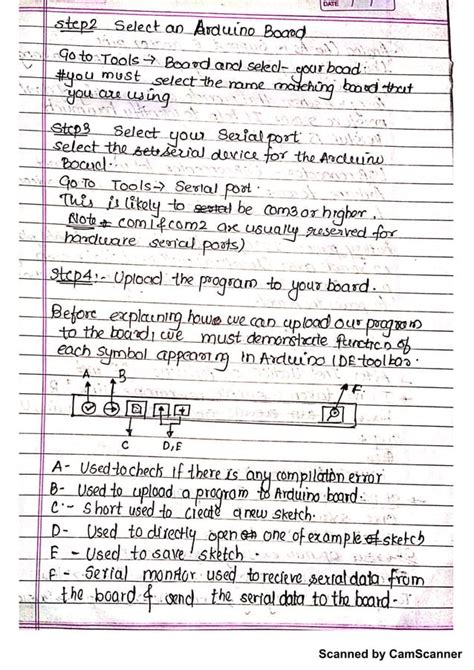 DATE
Step2 Select an Arduino Board
Go to Tools → Board and select your boad.
#you must select the name matching board that
you are using
Step3 Select your Serial port
select the serial device for the Arduino
Board.
Go To Tools → Serial port.
This is likely to be com3 or higher.
(Note → com1 & com2 are usually reserved for
hardware serial ports)
Step4:- Upload the program to your board.
Before explaining how we can upload our program
to the board, we must demonstrate function of
each symbol appearing in Arduino IDE toolbar.
A B F
C D,E
A- Used to check if there is any compilation error
B- Used to upload a program to Arduino board.
C- Short used to create a new sketch.
D- Used to directly open one of example sketch
E - Used to save sketch.
F - Serial monitor used to recieve serial data from
the board & send the serial data to the board.
Scanned by CamScanner